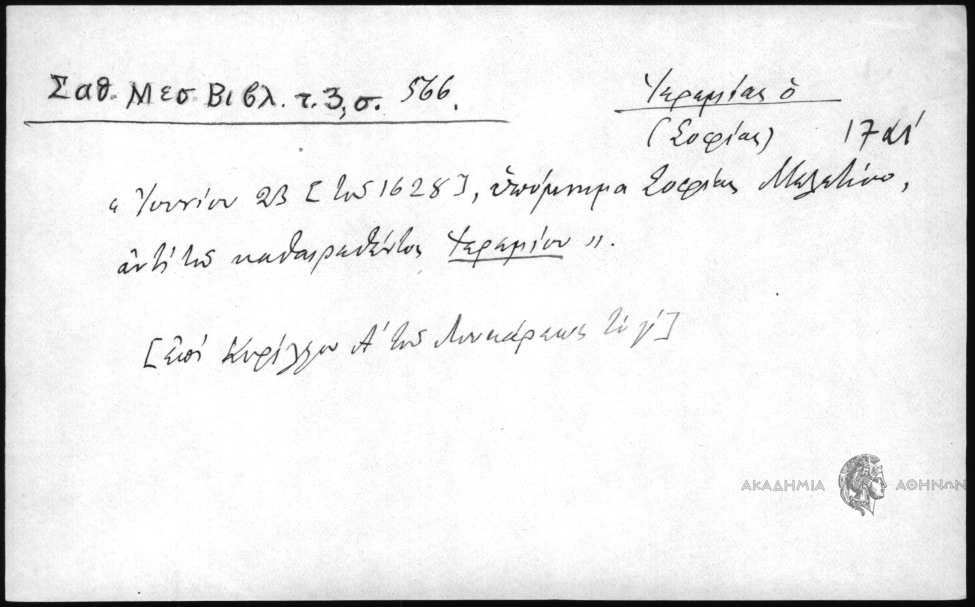 Σαθ. Μεσ Βιβλ. τ. 3, σ. 566.
Ἱερεμίας ὁ
(Σοφίας) 17 αἰ
« Ἰουνίου 23 [τοῦ 1628], ὑπόμνημα Σοφίας Μελετίου,
ἀντὶ τοῦ καθαιρεθέντος Ἱερεμίου ».
[ἐπὶ Κυρίλλου Α' τοῦ Λουκάρεως τὸ γ']
ΑΚΑΔΗΜΙΑ ΑΘΗΝΩΝ